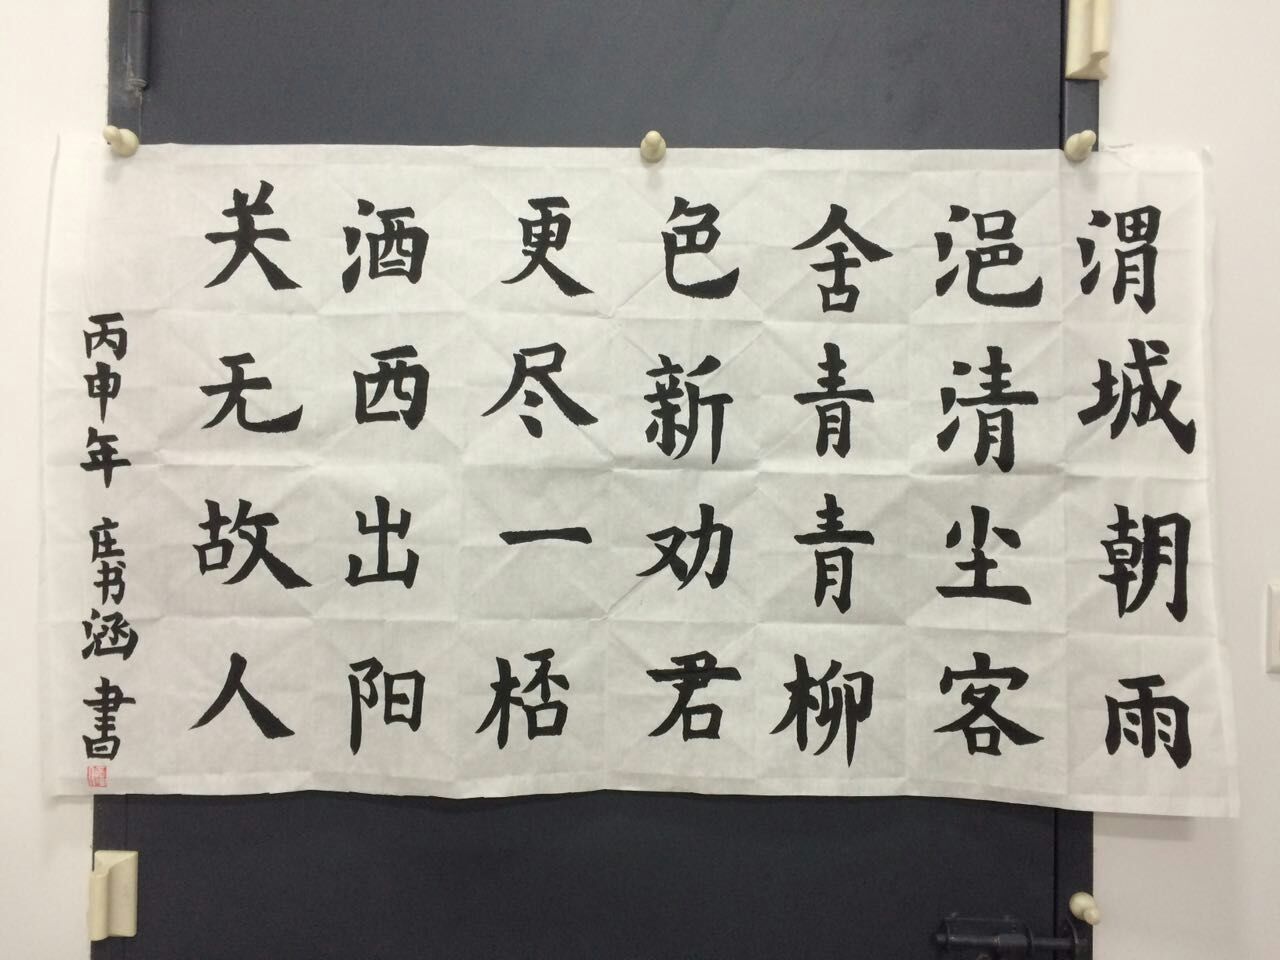 渭城朝雨
浥清尘客
舍青青柳
色新劝君
更尽一桮
酒西出阳
关无故人
丙申年 庄书涵 書